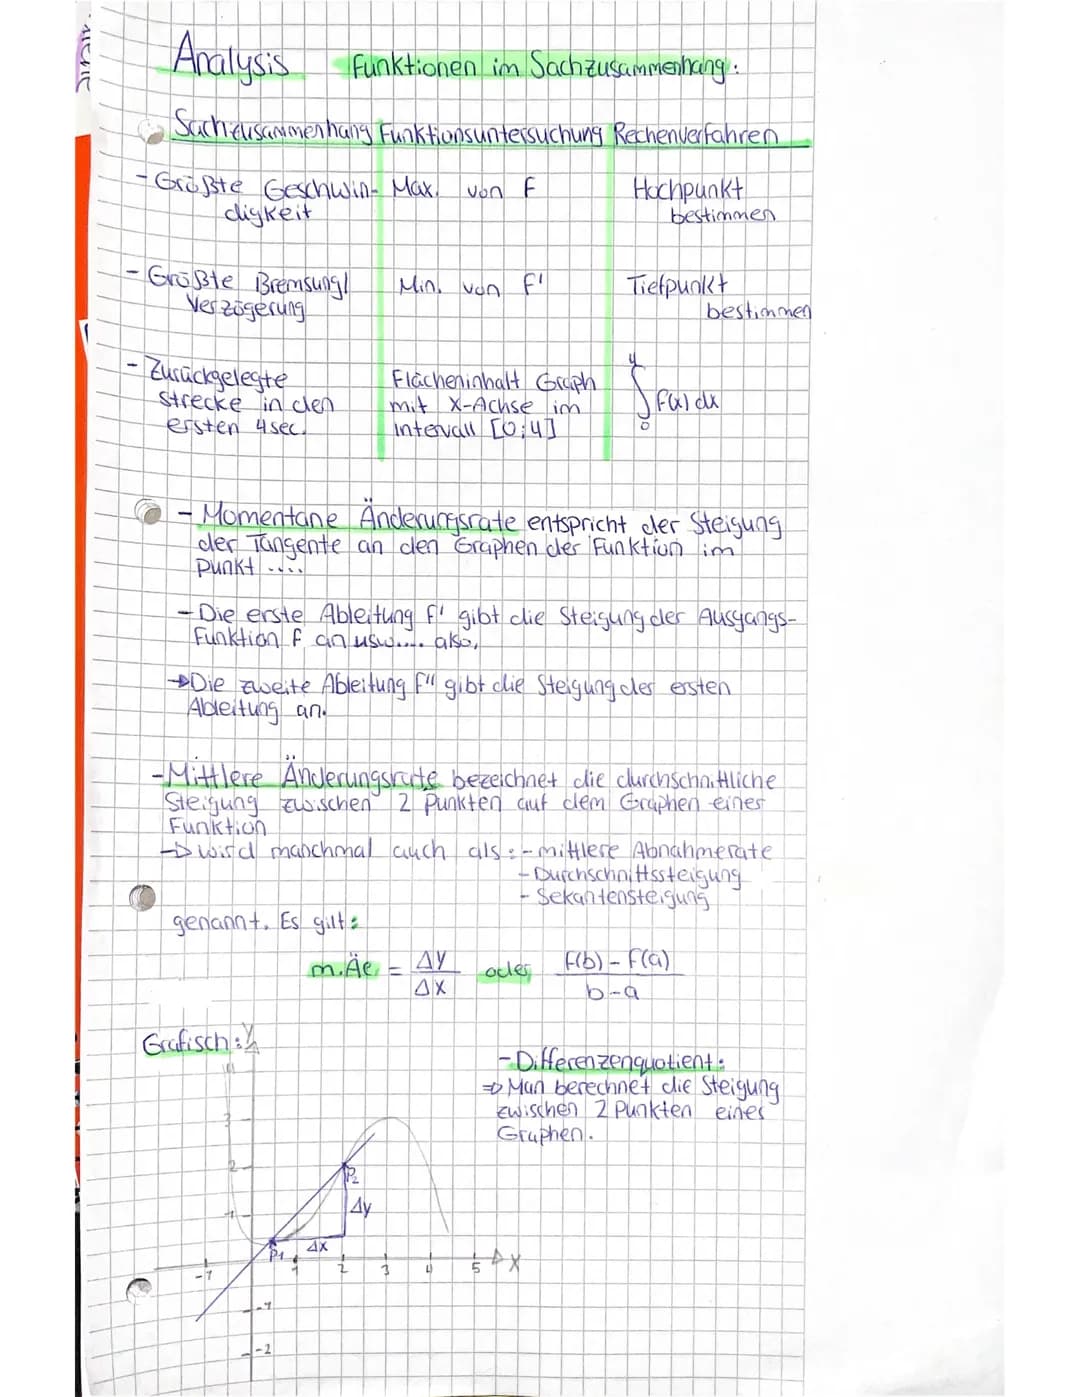 Analysis Funktionen im Sachzusammenhang:
Sachzusammenhang Funktionsuntersuchung Rechenverfahren
- Größte Geschwin- Max. von f Hochpunkt
digkeit bestimmen
- Größte Bremsung/ Min. von f' Tiefpunkt
Verzögerung bestimmen
- Zurückgelegte Flächeninhalt Graph 4
strecke in den mit X-Achse im ∫ f(x) dx
ersten 4 sec. intervall [0;4] 0
- Momentane Änderungsrate entspricht der Steigung
der Tangente an den Graphen der Funktion im
Punkt ....
- Die erste Ableitung f' gibt die Steigung der Ausgangs-
funktion f an usw.... also,
→ Die zweite Ableitung f'' gibt die Steigung der ersten
Ableitung an.
- Mittlere Änderungsrate bezeichnet die durchschnittliche
Steigung zwischen 2 Punkten auf dem Graphen eines
Funktion
→ wird manchmal auch als: - mittlere Abnahmerate
- Durchschnittssteigung
- Sekantensteigung
genannt. Es gilt:
m.Äe = Δy/Δx oder f(b) - f(a)/b-a
Grafisch: y
- Differenzenquotient:
⇒ Man berechnet die Steigung
zwischen 2 Punkten eines
Graphen.
3
2
P2
1
Δy
P1 Δx
-1 1 2 3 4 5 X
-1
-2